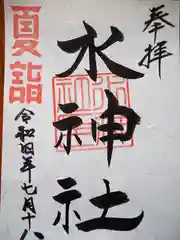 奉拝
水神社
夏詣
令和四年七月十八